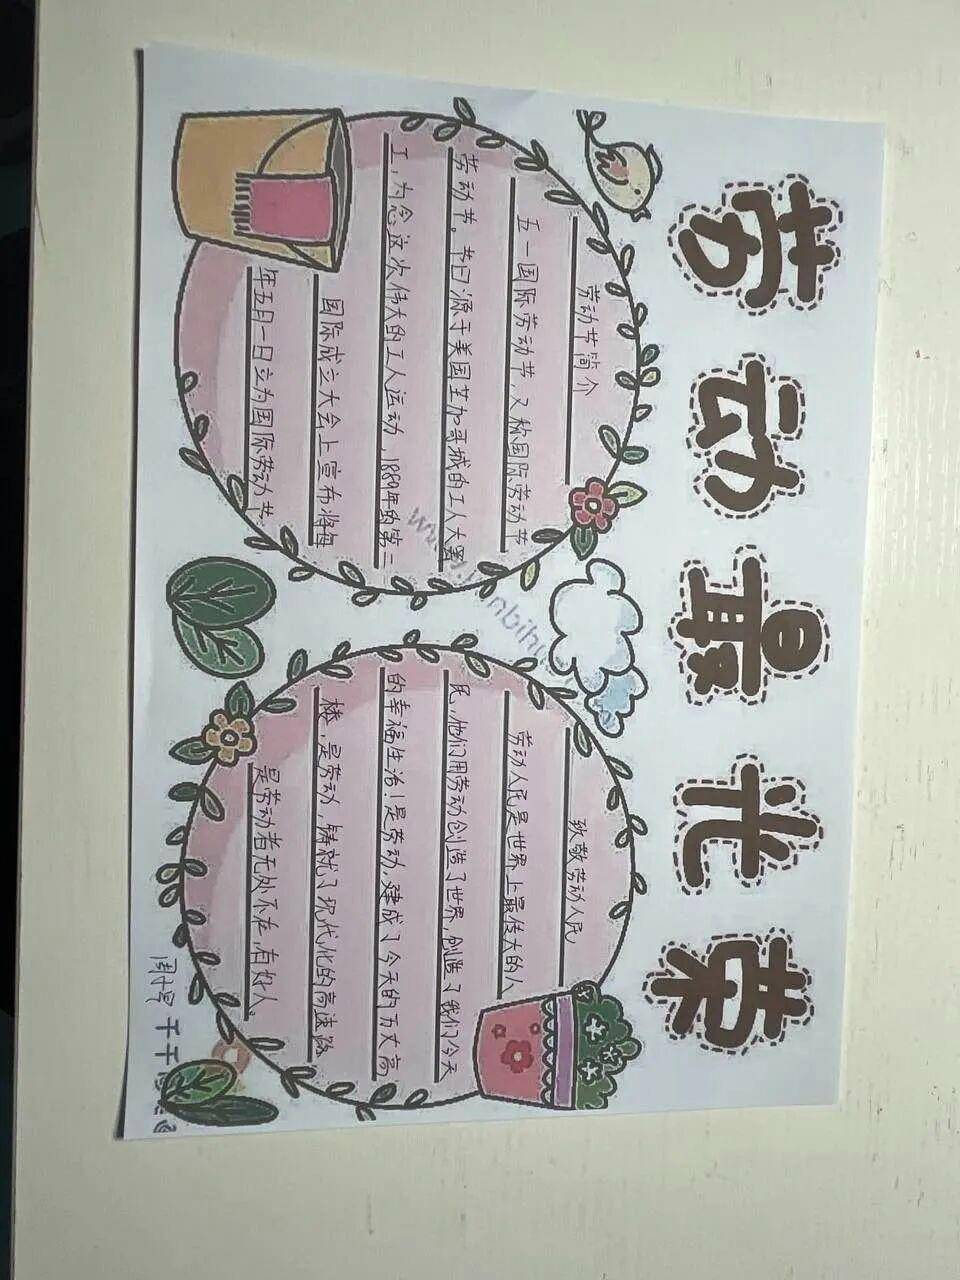 劳动最光荣
劳动节简介
五一国际劳动节，又称国际劳动节
劳动节。节日源于美国芝加哥城的工人大罢
工，为念这次伟大的工人运动，1889年的第二
国际成立大会上宣布将每
年五月一日立为国际劳动节
致敬劳动人民
劳动人民是世界上最伟大的人
民，他们用劳动创造了世界，创造了我们今天
的幸福生活！是劳动，建成了今天的万丈高
楼，是劳动，铸就了现代化的高速路
是劳动者无处不在，有好人。